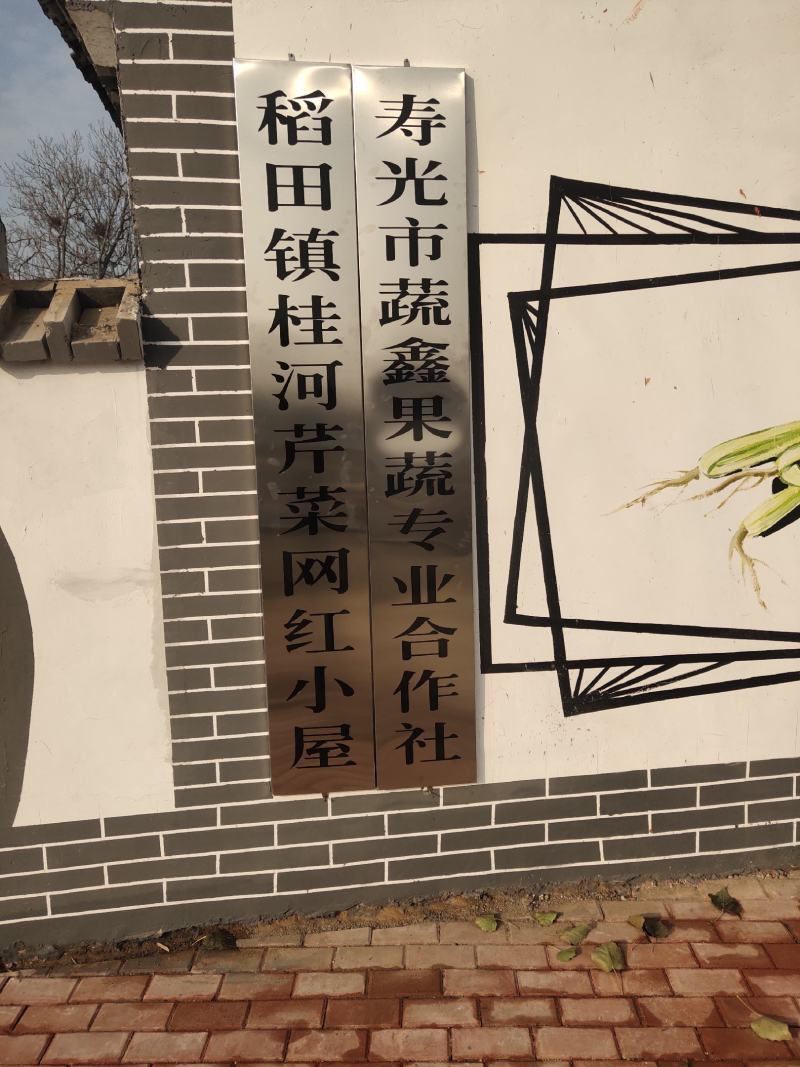 稻田镇桂河芹菜网红小屋
寿光市蔬鑫果蔬专业合作社